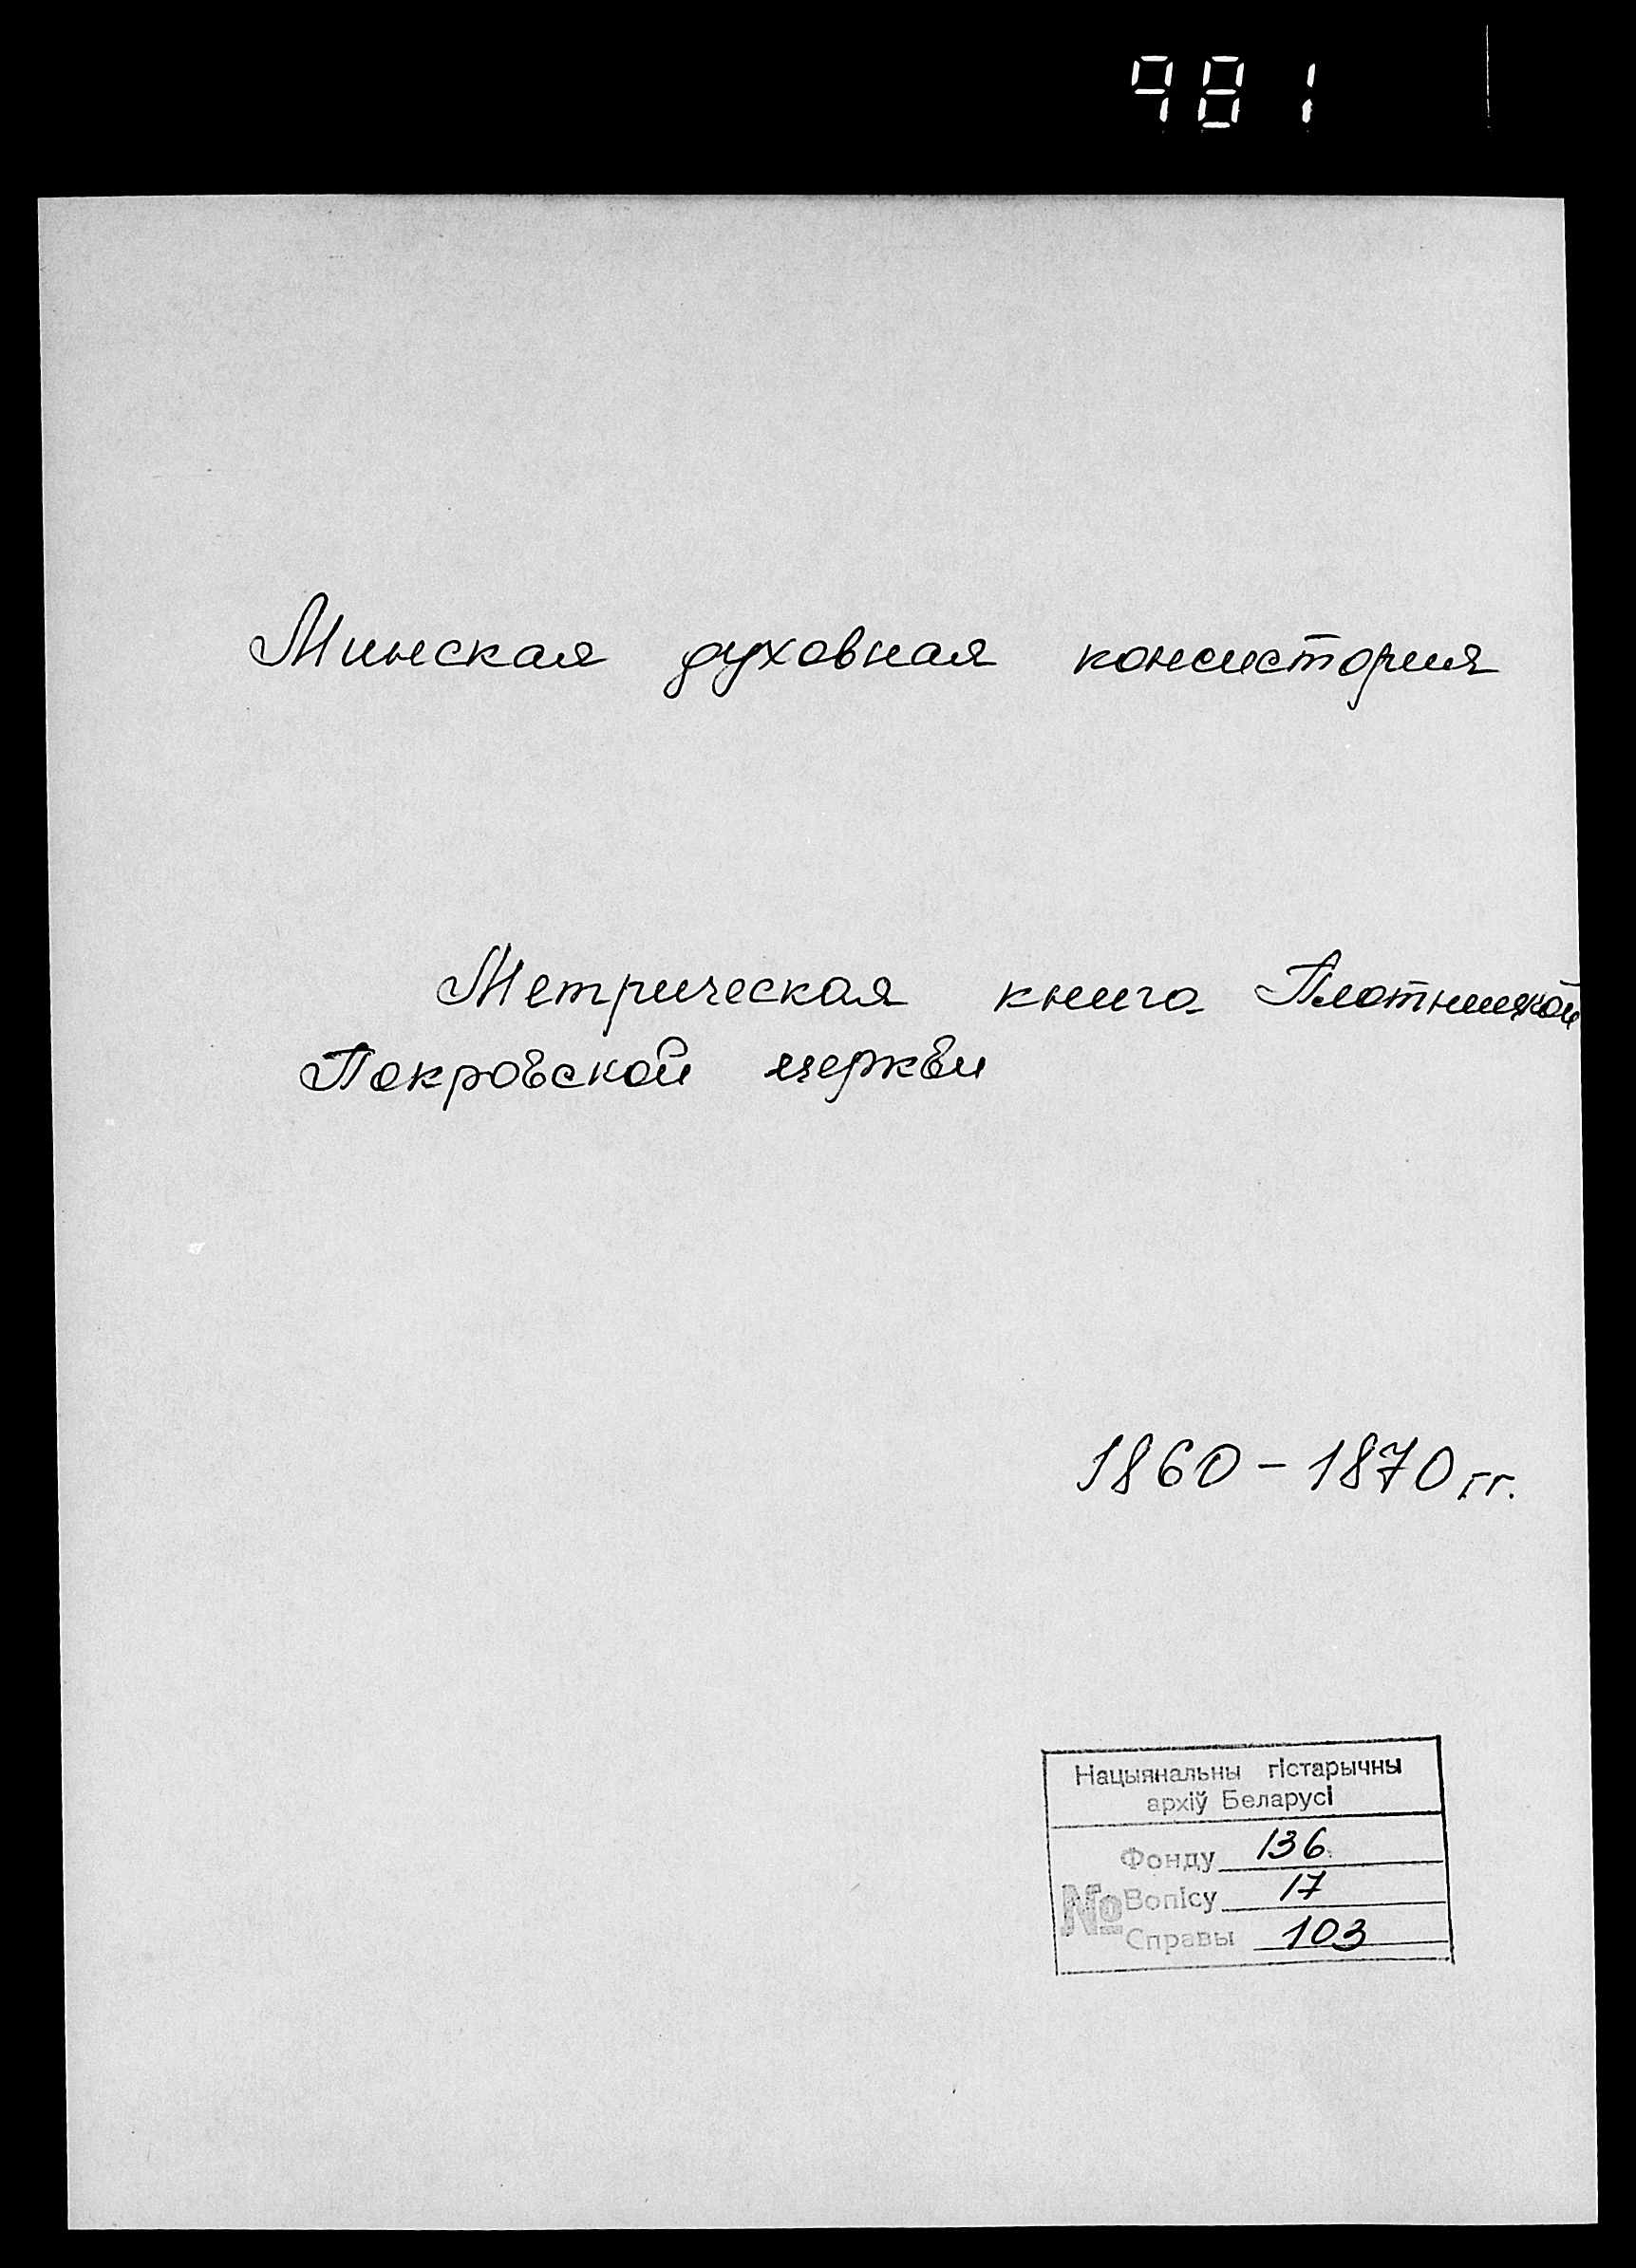 981
Минская духовная консистория
Метрическая книга Плотницкой
Покровской церкви
1860 - 1870 гг.
Нацыянальны гістарычны
архіў Беларусі
Фонду 136
№ Вопісу 17
Справы 103